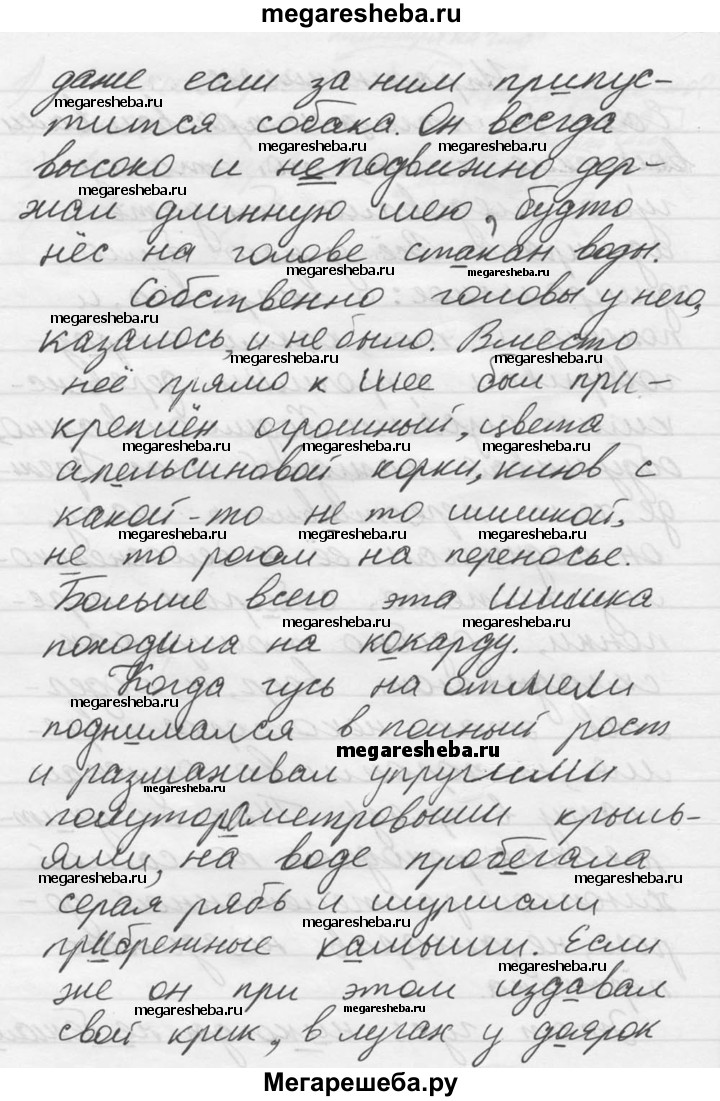 megaresheba.ru
даже если за ним припус-
тится собака. Он всегда
высоко и неподвижно дер-
жал длинную шею, будто
нёс на голове стакан воды.
Собственно головы у него,
казалось, и не было. Вместо
неё прямо к шее был при-
креплён огромный, цвета
апельсиновой корки, клюв с
какой-то не то шишкой,
не то рогом на переносье.
Больше всего эта шишка
походила на кокарду.
Когда гусь на отмели
поднимался в полный рост
и размахивал упругими
полутораметровыми крыль-
ями, на воде пробегала
серая рябь и шуршали
прибрежные камыши. Если
же он при этом издавал
свой крик, в лугах у доярок
Мегарешеба.ру